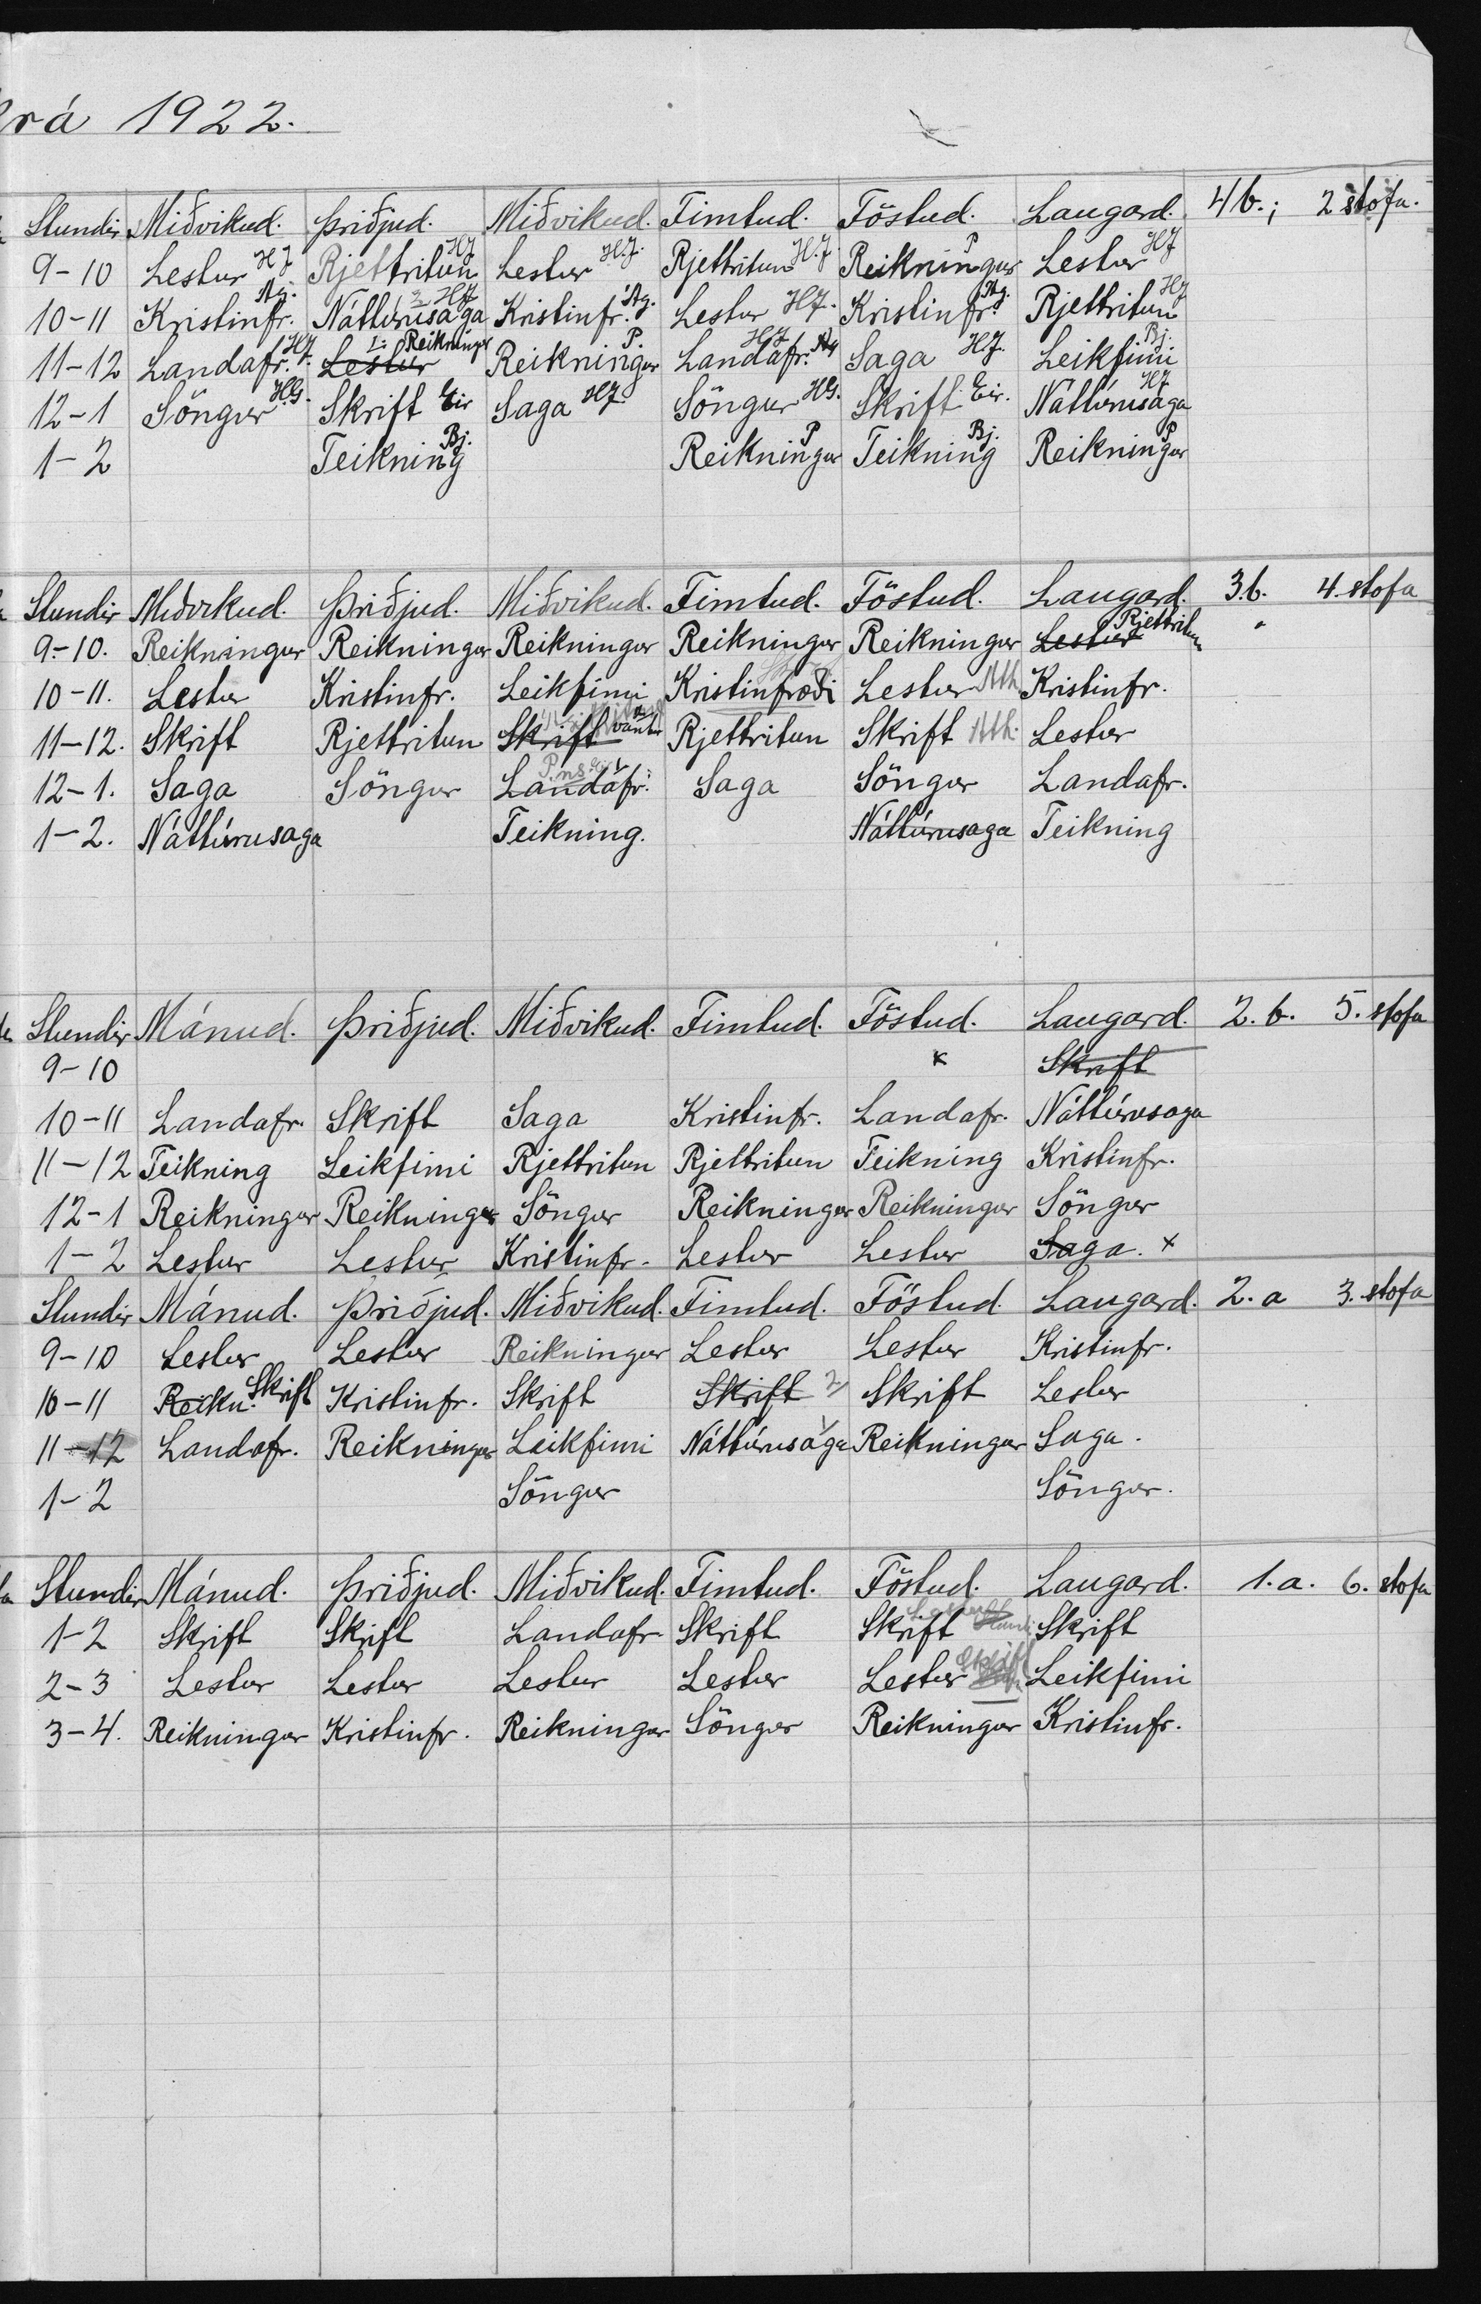 rá 1922.
Stundir Miðvikud. Þriðjud. Miðvikud. Fimtud. Föstud. Laugard. 4 b.; 2 stofa.
9-10 Lestur HJ Rjettritun HJ Lestur H.J. Rjettritun H.J. Reikningur P Lestur HJ
10-11 Kristinfr. Ag. Náttúrusaga HJ Kristinfr. Ag. Lestur HJ. Kristinfr. Ag. Rjettritun HJ
11-12 Landafr. HJ. Lestur Reikningur Reikningur P. Landafr. HJ Saga HJ. Leikfimi Bj.
12-1 Söngur HG. Skrift Eir Saga HJ Söngur HG. Skrift Eir. Náttúrusaga HJ
1-2 Teikning Bj. Reikningur P Teikning Bj. Reikningur P
Stundir Miðvikud. Þriðjud. Miðvikud. Fimtud. Föstud. Laugard. 3.b. 4. stofa
9-10. Reikningur Reikningur Reikningur Reikningur Reikningur Lestur Rjettritun
10-11. Lestur Kristinfr. Leikfimi Kristinfræði Lestur Ath. Kristinfr.
11-12. Skrift Rjettritun Skrift vantar Rjettritun Skrift Ath. Lestur
12-1. Saga Söngur Landafr. Saga Söngur Landafr.
1-2. Náttúrusaga Teikning. Náttúrusaga Teikning
Stundir Mánud. Þriðjud. Miðvikud. Fimtud. Föstud. Laugard. 2. b. 5. stofa
9-10 x Skrift
10-11 Landafr. Skrift Saga Kristinfr. Landafr. Náttúrusaga
11-12 Teikning Leikfimi Rjettritun Rjettritun Teikning Kristinfr.
12-1 Reikningur Reikningur Söngur Reikningur Reikningur Söngur
1-2 Lestur Lestur Kristinfr. Lestur Lestur Saga. x
Stundir Mánud. Þriðjud. Miðvikud. Fimtud. Föstud. Laugard. 2. a 3. stofa
9-10 Lestur Lestur Reikningur Lestur Lestur Kristinfr.
10-11 Reikn. Skrift Kristinfr. Skrift Skrift Skrift Lestur
11-12 Landafr. Reikningur Leikfimi Náttúrusaga Reikningur Saga.
1-2 Söngur Söngur.
Stundir Mánud. Þriðjud. Miðvikud. Fimtud. Föstud. Laugard. 1. a. 6. stofa
1-2 Skrift Skrift Landafr Skrift Skrift Lestur Skrift
2-3 Lestur Lestur Lestur Lestur Lestur Skrift Leikfimi
3-4. Reikningur Kristinfr. Reikningur Söngur Reikningur Kristinfr.